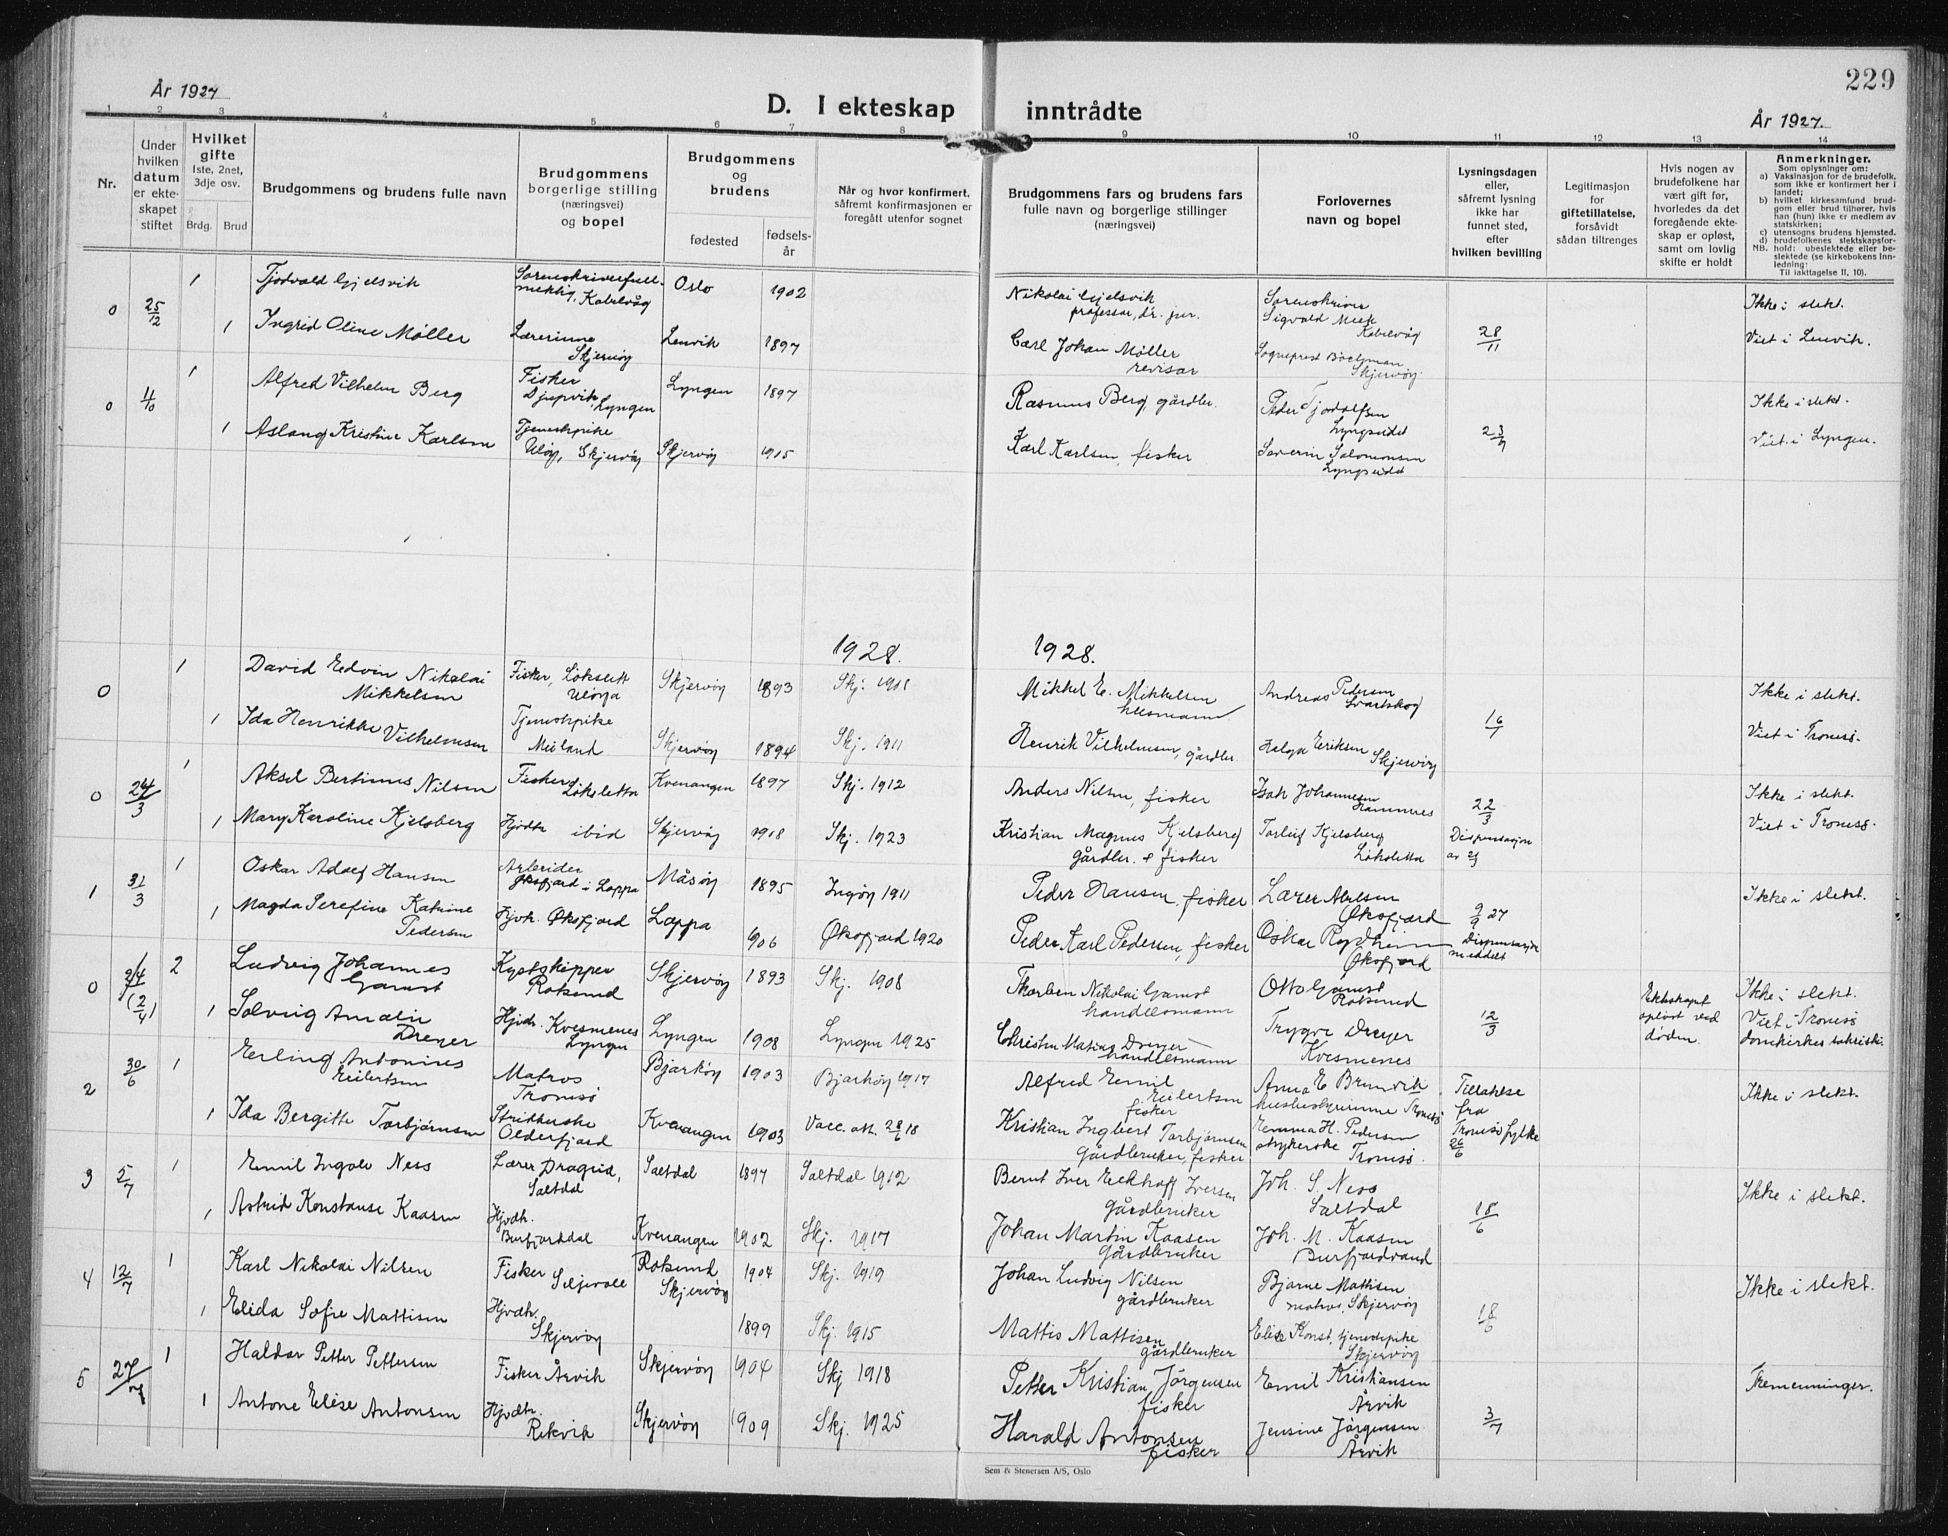 229
År 1927
D. I ekteskap inntrådte
År 1927.
1 2 3 4 5 6 7 8 9 10 11 12 13 14
Nr.
Under hvilken datum er ekteskapet stiftet
Hvilket gifte
1ste, 2net, 3dje osv.
Brdg. Brud
Brudgommens og brudens fulle navn
Brudgommens borgerlige stilling (næringsvei) og bopel
Brudgommens og brudens
fødested
fødselsår
Når og hvor konfirmert, såfremt konfirmasjonen er foregått utenfor sognet
Brudgommens fars og brudens fars fulle navn og borgerlige stillinger (næringsvei)
Forlovernes navn og bopel
Lysningsdagen eller, såfremt lysning ikke har funnet sted, efter hvilken bevilling
Legitimasjon for giftetillatelse, forsåvidt sådan tiltrenges
Hvis nogen av brudefolkene har vært gift før, hvorledes da det foregående ekteskap er opløst, samt om lovlig skifte er holdt
Anmerkninger.
Som oplysninger om:
a) Vaksinasjon for de brudefolk, som ikke er konfirmert her i landet;
b) hvilket kirkesamfund brudgom eller brud tilhører, hvis han (hun) ikke er medlem av statskirken;
c) utensogns brudens hjemsted.
d) brudefolkenes slektskapsforhold: ubeslektede eller beslektede (se kirkebokens Innledning:
Til iakttagelse II, 10).
0 25/12 1 Tjodvald Gjelsvik Sorenskriverfullmektig, Kabelvåg Oslo 1902 Nikolai Gjelsvik professor, dr. jur. Sorenskriver Sigvald Meek Kabelvåg 28/11 Ikke i slekt.
1 Ingrid Oline Møller Lærerinne Skjervøy Lenvik 1897 Carl Johan Møller revisor Sogneprest Skjervøy. Viet i Lenvik.
0 4/10 1 Alfred Vilhelm Berg Fisker Djupvik, Lyngen Lyngen 1897 Rasmus Berg, gårdbr. Peder Tjodolfsen Lyngseidet Ikke i slekt.
1 Aslaug Kristine Karlsen Tjenestpike Uløy, Skjervøy Skjervøy 1905 Karl Karlsen, fisker Severin Salomonsen Lyngseidet 23/9 Viet i Lyngen.
1928. 1928.
0 1 David Edvin Nikolai Mikkelsen Fisker, Løkslett Uløya Skjervøy 1893 Skj. 1908 Mikkel E. Mikkelsen husmann Andreas Pedersen Svartskog Ikke i slekt.
1 Ida Henrikke Vilhelmsen Tjenestpike Meiland Skjervøy 1894 Skj. 1911 Henrik Vilhelmsen, gårdbr. Helga Eriksen Skjervøy Viet i Tromsø.
0 24/3 1 Aksel Bertinus Nilsen Fisker, Løksletta Kvenangen 1897 Skj. 1912 Anders Nilsen, fisker Isak Johannesen Hamnnes 22/3 Ikke i slekt.
1 Mary Karoline Kjelsberg Hjvdtr ibid Skjervøy 1908 Skj. 1923 Kristian Magnus Kjelsberg gårdbr. & fisker Torleif Kjelsberg Løksletta Dispensasjon Viet i Tromsø.
1 31/3 1 Oskar Adolf Hansen Arbeider Øksfjord i Loppa Måsøy 1895 Ingøy 1911 Peder Hansen, fisker Lærer Øksfjord 9/9 27 Ikke i slekt.
1 Magda Serefine Katrine Pedersen Hjvdtr. Øksfjord Loppa 1906 Øksfjord 1920 Peder Karl Pedersen, fisker Oskar Rydheim Øksfjord Dispensasjon meddelt
0 2/4 (2/4) 2 Ludvig Johannes Gamst Kystskipper Rotsund Skjervøy 1893 Skj. 1908 Thorben Nikolai Gamst handelsmann Otto Gamst Rotsund 12/3 Ekteskapet opløst ved døden. Ikke i slekt.
1 Solveig Amalie Dreyer Hjvdtr. Kvesmenes Lyngen Lyngen 1908 Lyngen 1925 Christen Matias Dreyer handelsmann Trygve Dreyer Kvesmenes Viet i Tromsø domkirkes sakristi.
2 30/6 1 Erling Antonius Eilertsen Matros Tromsø Bjarkøy 1903 Bjarkøy 1917 Alfred Emil Eilertsen fisker Anna E Brunvik husbestyrerinne Tromsø Tillatelse fra Tromsø fylke 26/6 Ikke i slekt.
1 Ida Bergitte Torbjørnsen Strikkerske Olderfjord Kvenangen 1903 Vacc. att. 28/6 18 Kristian Ingbert Torbjørnsen gårdbruker, fisker Emma H. Pedersen strykerske Tromsø.
3 5/7 1 Emil Ingolv Ness Lærer Drageid, Saltdal Saltdal 1897 Saltdal 1912 Bernt Iver Eckhoff Iversen gårdbruker Joh. S. Ness Saltdal 18/6 Ikke i slekt.
1 Astrid Konstanse Kaasen Hjvdtr. Burfjorddal Kvenangen 1902 Skj. 1917 Johan Martin Kaasen gårdbruker Joh. M. Kaasen Burfjordvand
4 12/7 1 Karl Nikolai Nilsen Fisker Seljevoll Rotsund Skjervøy 1904 Skj. 1919 Johan Ludvig Nilsen gårdbruker Bjarne Mattisen matros, Skjervøy 18/6 Ikke i slekt.
1 Elida Sofie Mattisen Hjvdtr. Skjervøy 1899 Skj. 1915 Mattis Mattisen gårdbruker Elise Konst, tjenestepike Skjervøy
5 27/7 1 Haldor Petter Pettersen Fisker Årvik Skjervøy 1904 Skj 1918 Petter Kristian Jörgensen fisker Emil Kristiansen Årvik 3/7 Tremenninger.
1 Antone Elise Antonsen Hjvdtr. Reikvik Skjervøy 1909 Skj. 1925 Harald Antonsen fisker Jensine Jörgensen Årvik
Sem & Stenersen A/S, Oslo